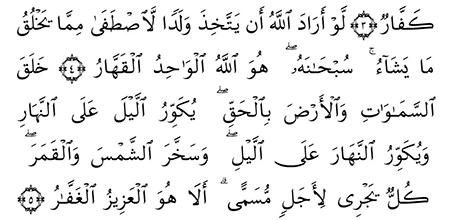 كَفَّارٌ ﴿٣﴾ لَّوْ أَرَادَ ٱللَّهُ أَن يَتَّخِذَ وَلَدًا لَّٱصْطَفَىٰ مِمَّا يَخْلُقُ
مَا يَشَآءُ ۚ سُبْحَـٰنَهُۥ ۖ هُوَ ٱللَّهُ ٱلْوَٰحِدُ ٱلْقَهَّارُ ﴿٤﴾ خَلَقَ
ٱلسَّمَـٰوَٰتِ وَٱلْأَرْضَ بِٱلْحَقِّ ۖ يُكَوِّرُ ٱلَّيْلَ عَلَى ٱلنَّهَارِ
وَيُكَوِّرُ ٱلنَّهَارَ عَلَى ٱلَّيْلِ ۖ وَسَخَّرَ ٱلشَّمْسَ وَٱلْقَمَرَ ۖ
كُلٌّ يَجْرِى لِأَجَلٍ مُّسَمًّى ۗ أَلَا هُوَ ٱلْعَزِيزُ ٱلْغَفَّـٰرُ ﴿٥﴾